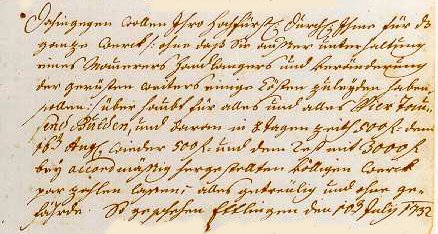 Dahingegen wollen Ihro Hochfürstl. Durchl. Ihme für das
ganze Werck /: ohne daß Sie ausser unterhaltung
eines Maurers Handlangers und Veränderung
der gerüsten weiters einige Cösten zuleyden haben
sollen :/ überhaubt für alles und alles Vier Tau-
send Gulden, und daran in 8 tagen zeith 500 f: den
16ten Aug: wieder 500 f: und den Rest mit 3000 f
bey accordmässig hergestellten völligen Werck
par zahlen lassen, alles getreülich und ohne ge-
fährde. So geschehen Ettlingen den 10ten July 1732